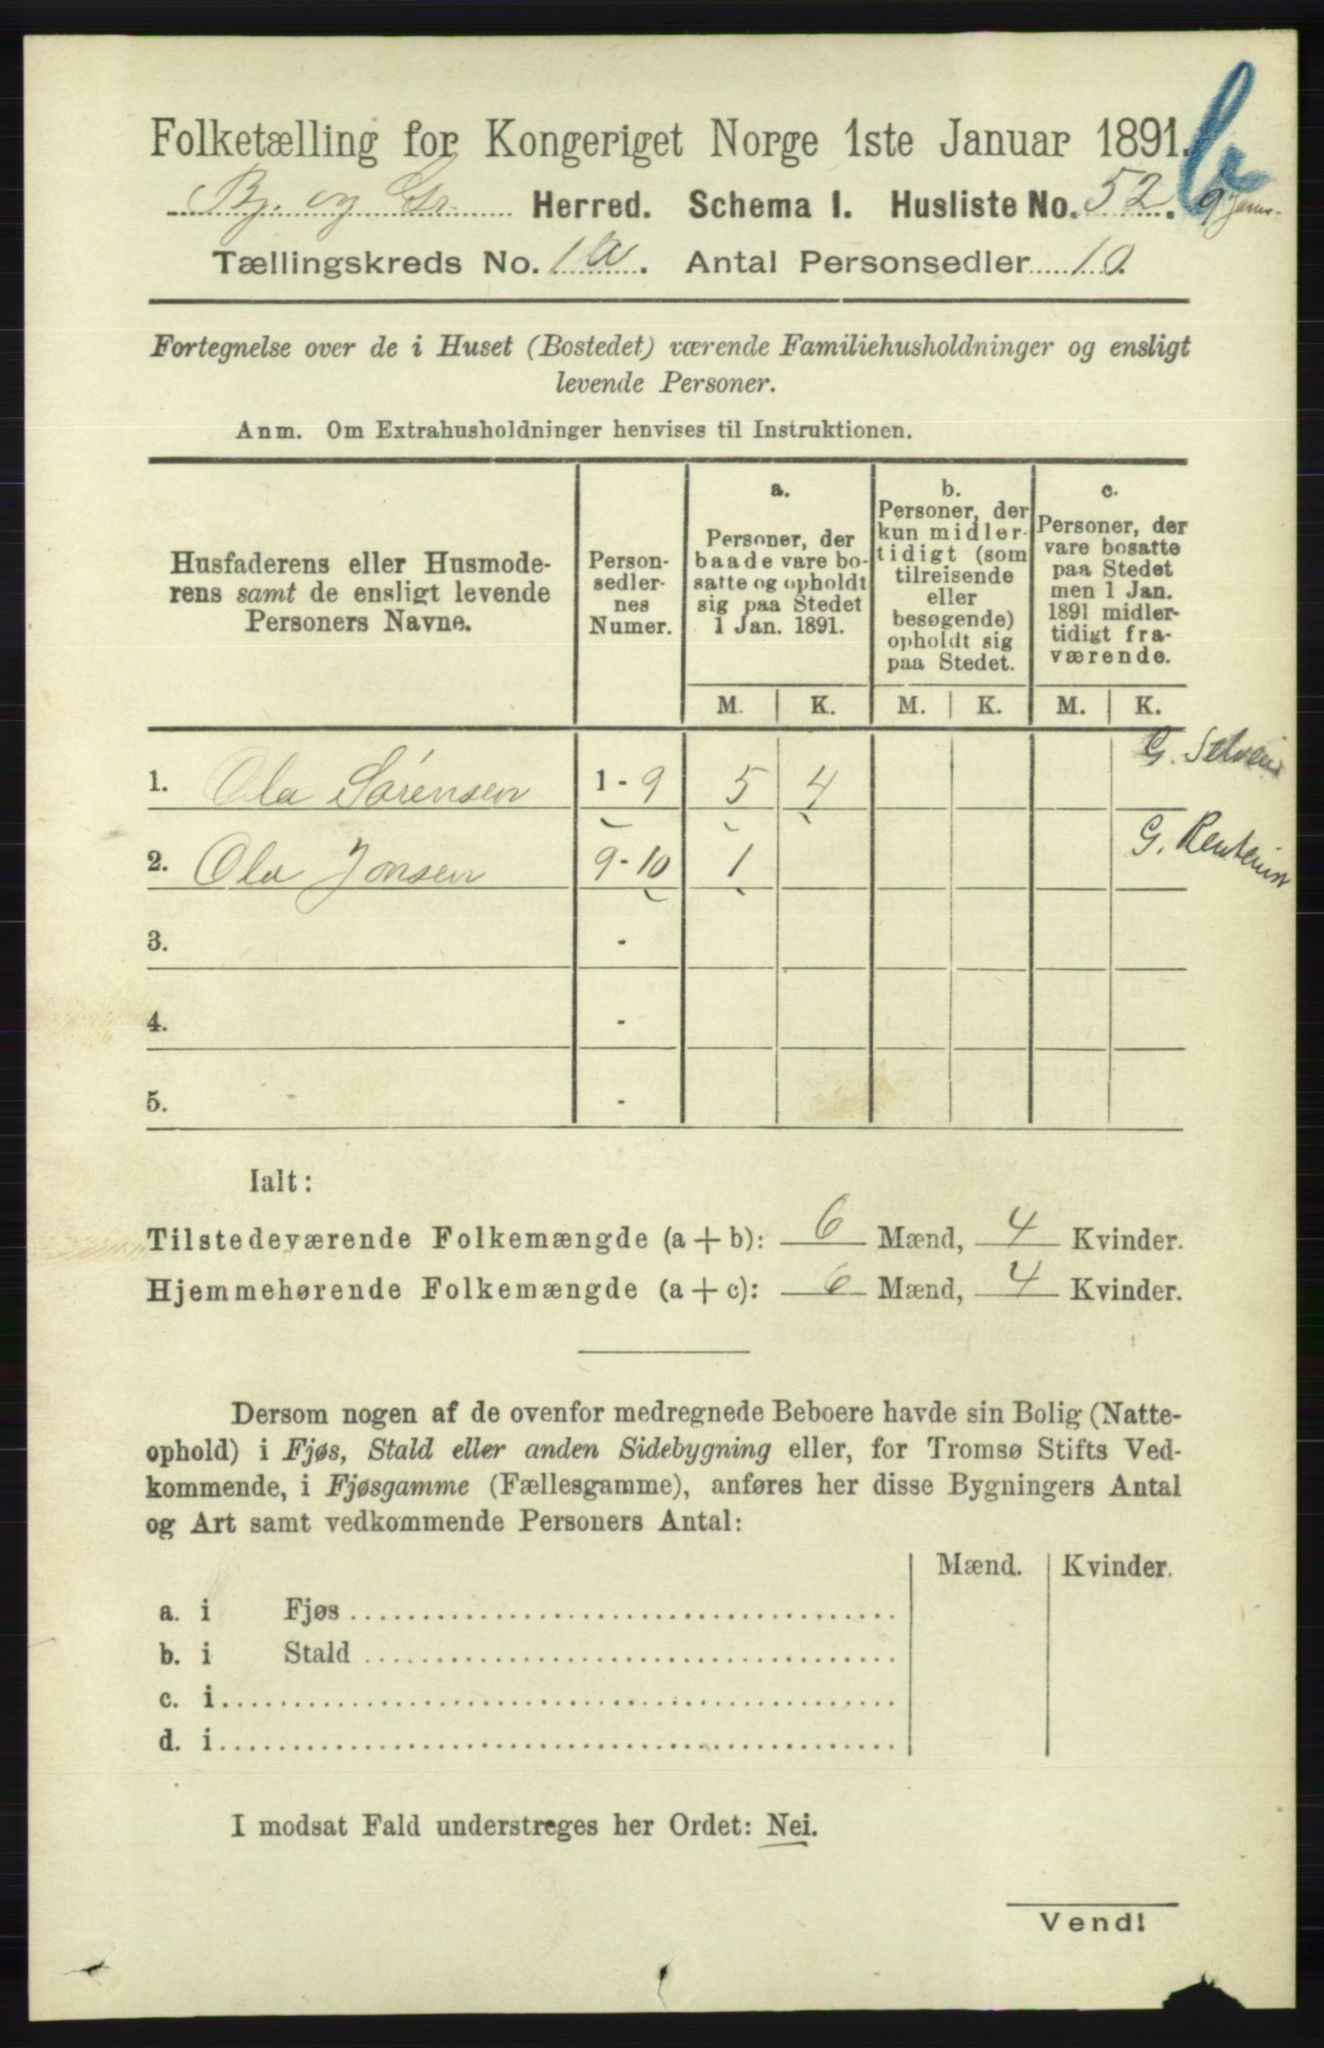 Folketælling for Kongeriget Norge 1ste Januar 1891.
Bj. og Gr. Herred. Schema I. Husliste No. 52.
Tællingskreds No. 1a. Antal Personsedler 10.
Fortegnelse over de i Huset (Bostedet) værende Familiehusholdninger og ensligt
levende Personer.
Anm. Om Extrahusholdninger henvises til Instruktionen.
Husfaderens eller Husmode-
rens samt de ensligt levende
Personers Navne.
Person-
sedler-
nes
Numer.
a.
Personer, der
baade vare bo-
satte og opholdt
sig paa Stedet
1 Jan. 1891.
b.
Personer, der
kun midler-
tidigt (som
tilreisende
eller
besøgende)
opholdt sig
paa Stedet.
c.
Personer, der
vare bosatte
paa Stedet
men 1 Jan.
1891 midler-
tidigt fra-
værende.
M. K. M. K. M. K.
1. Ola Sørensen 1 - 9 5 4 G.
2. Ola Jonsen 9 - 10 1 G.
3. -
4. -
5. -
Ialt:
Tilstedeværende Folkemængde (a + b): 6 Mænd, 4 Kvinder.
Hjemmehørende Folkemængde (a + c): 6 Mænd, 4 Kvinder.
Dersom nogen af de ovenfor medregnede Beboere havde sin Bolig (Natte-
ophold) i Fjøs, Stald eller anden Sidebygning eller, for Tromsø Stifts Ved-
kommende, i Fjøsgamme (Fællesgamme), anføres her disse Bygningers Antal
og Art samt vedkommende Personers Antal:
Mænd. Kvinder.
a. i Fjøs
b. i Stald
c. i
d. i
I modsat Fald understreges her Ordet: Nei.
Vend!